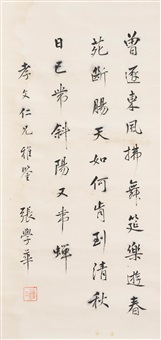 曾逐東風拂舞筵樂遊春
苑斷腸天如何肯到清秋
日已帶斜陽又帶蟬
孝文仁兄雅鑒 張學華